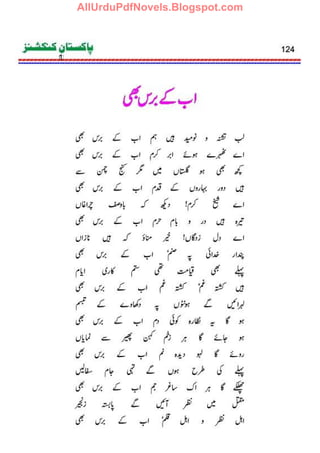 AllUrduPdfNovels.Blogspot.com
پاکستان کنکشنز
124
اب کے برس بھی
لب تشنہ و نومید ہیں ہم اب کے برس بھی
اے ٹھہرے ہوئے ابر کرم اب کے برس بھی
کچھ بھی ہو گلستاں میں مگر کنج چمن سے
ہیں دور بہاروں کے قدم اب کے برس بھی
اے شیخ کرم! دیکھ کہ باوصف چراغاں
تیرہ ہیں در و بام حرم اب کے برس بھی
اے دل زدگاں! خیر مناؤ کہ ہیں نازاں
پندار خدائی پہ صنم اب کے برس بھی
پہلے بھی قیامت تھی ستم کاری ایام
ہیں کشتہ غم کشتہ غم اب کے برس بھی
لہرائیں گے ہونٹوں پہ دکھاوے کے تبسم
ہو گا یہ نظارہ کوئی دم اب کے برس بھی
ہو جائے گا ہر زخم کہن پھر سے نمایاں
روئے گا لہو دیدہ نم اب کے برس بھی
پہلے کی طرح ہوں گے تہی جام سفالیں
چھلکے گا ہر اک ساغر جم اب کے برس بھی
مقتل میں نظر آئیں گے پابستہ زنجیر
اہل نظر و اہل قلم اب کے برس بھی
AllUrduPdfNovels.Blogspot.com